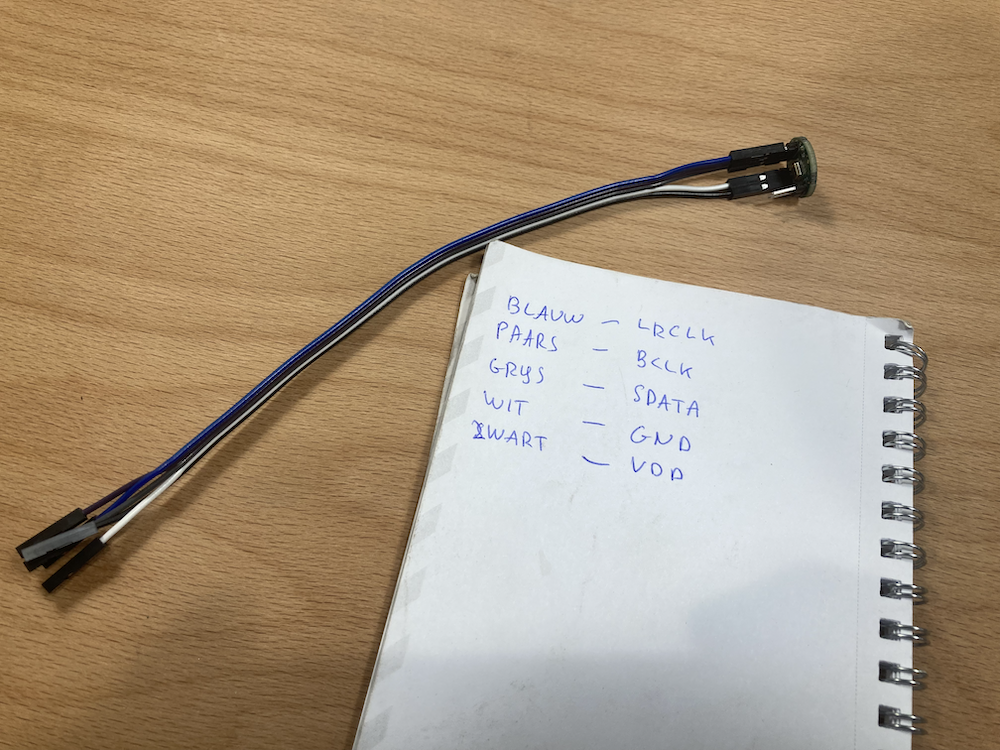 BLAUW - LRCLK
PAARS - BCLK
GRYS - SDATA
WIT - GND
ZWART - VDD